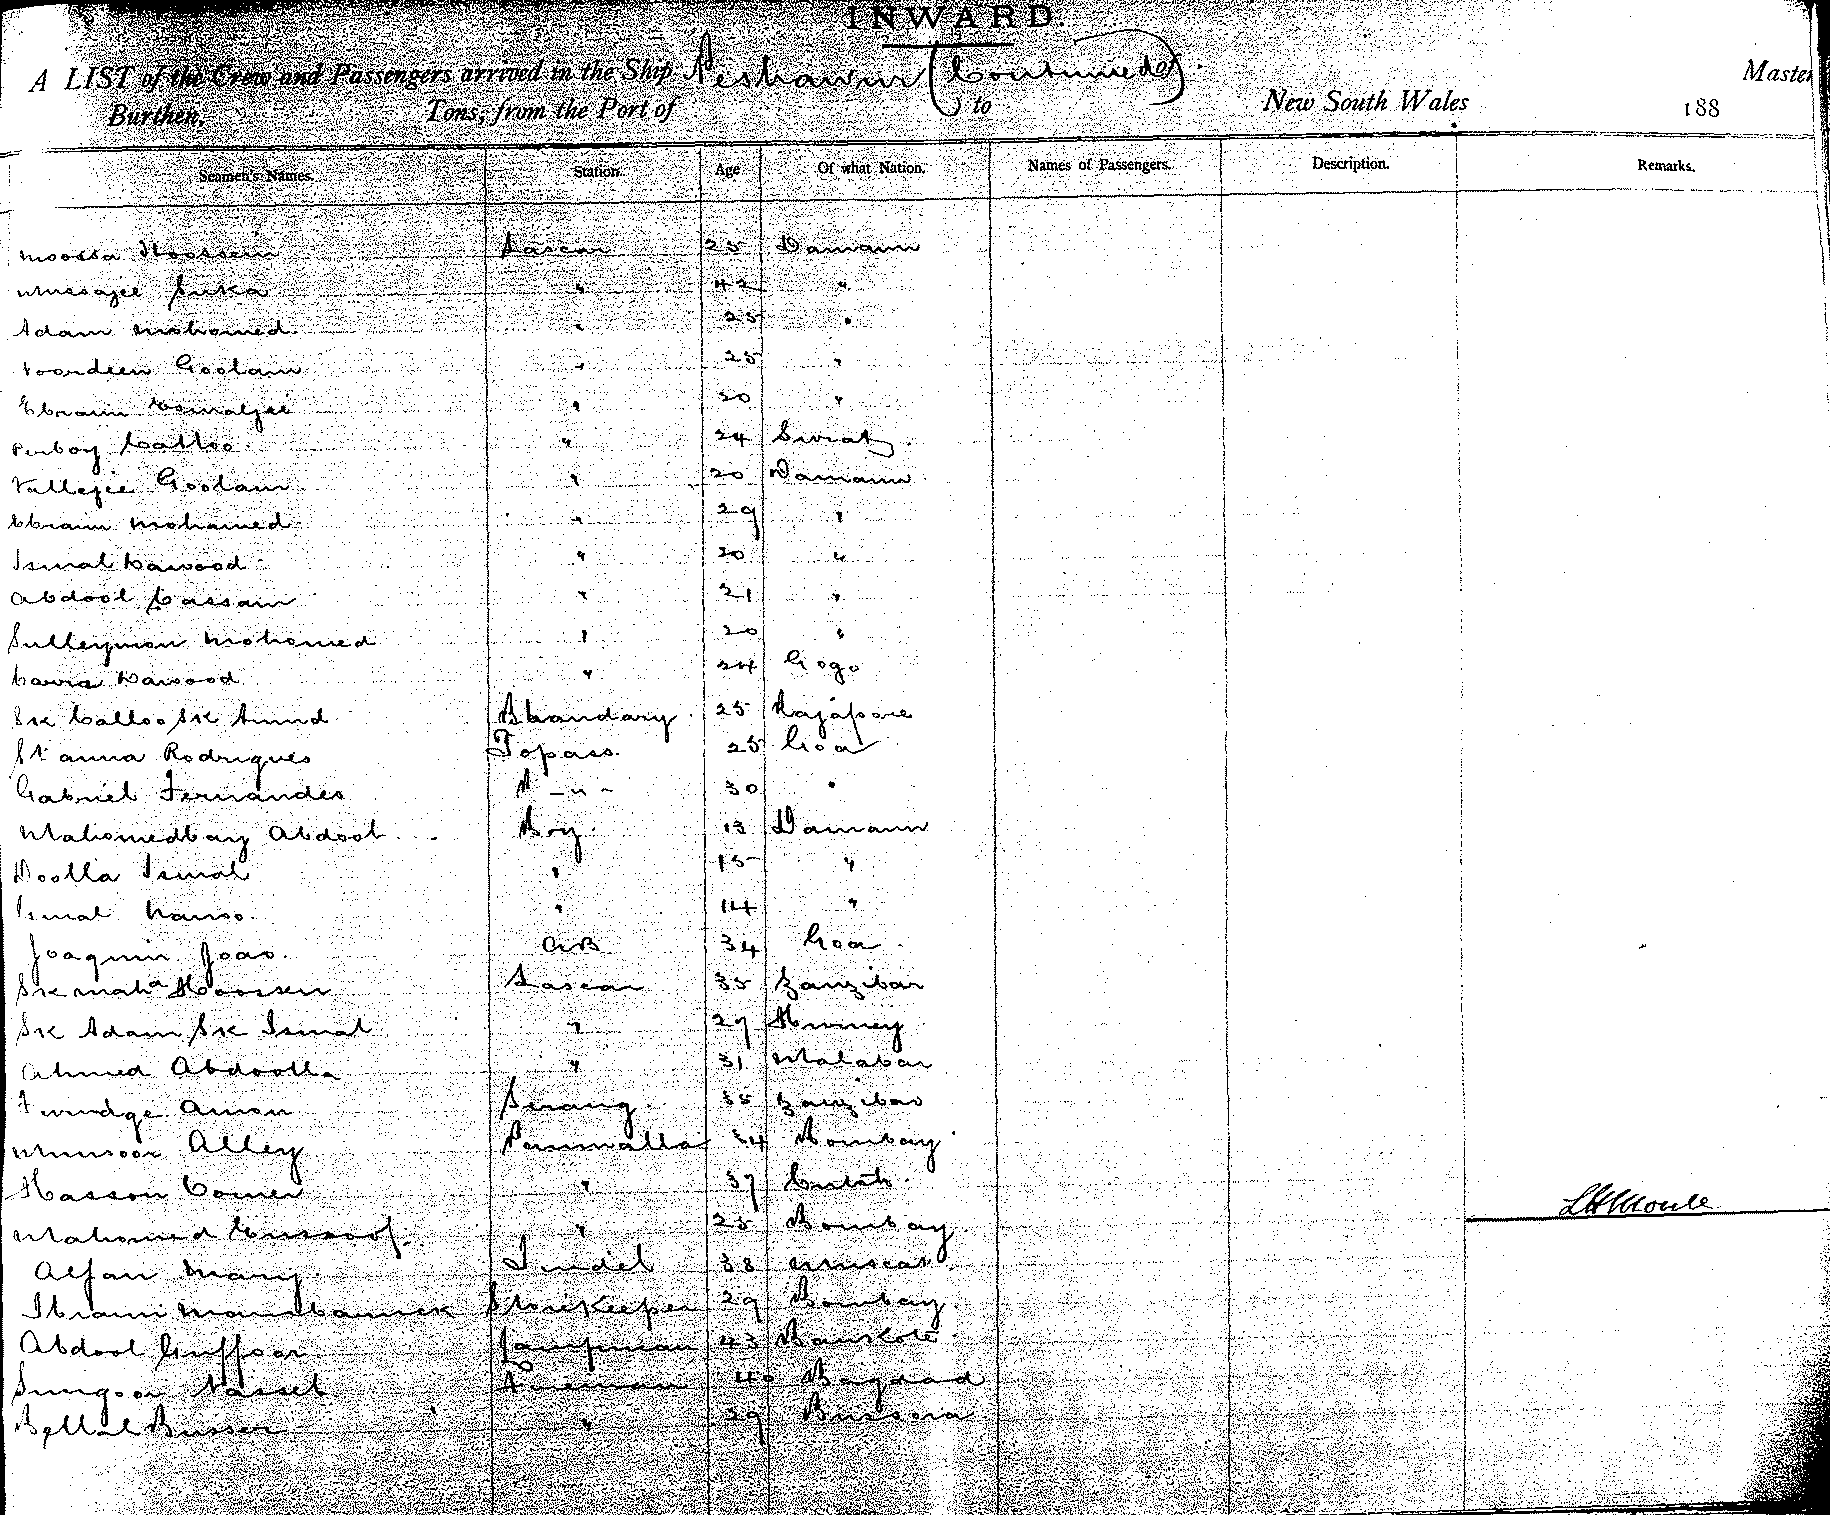 INWARD.
A LIST of the Crew and Passengers arrived in the Ship Peshawur (Continued) of Master
Burthen, Tons, from the Port of to New South Wales 188
Seamen's Names. Station. Age Of what Nation. Names of Passengers. Description. Remarks.
Moossa Hoossein Lascar 25 Damaun
42 "
Adam Mohomed " 25 "
Noordeen Goolam " 25 "
Ebraim Esmaljee " 30 "
Calloo " 24 Surat
Vallejee Goolam " 20 Damaun
Ebraim Mohamed " 29 "
Ismal Dawood " 20 "
Abdool Cassam " 21 "
Sulleyman Mohomed " 20 "
Dawood " 24 Gogo
Sk Calloo Sk Bhandary 25 Rajapore
St anna Rodrigues Topass 25 Goa
Gabriel Fernandes - " - 30 "
Mahomedbay Abdool Boy 13 Damaun
Doolla Ismal " 15 "
Ismal " 14 "
Joaquim Joao AB 34 Goa
Sk Maha Hoossen Lascar 35 Zanzibar
Sk Adam Sk Ismal " 29
Ahmed Abdoolla " 31 Malabar
Serang 35 Zanzibar
Munsoor Alley 34 Bombay
Hasson Comer " 37 Cutch
Mahomed Eussoof " 25 Bombay
Tindel 38 Muscat
Storekeeper 29 Bombay
Abdool Guffoor Lampman 43 Bankote
Sungoor Nassel Fireman 40 Bagdad
" 29 Bussora